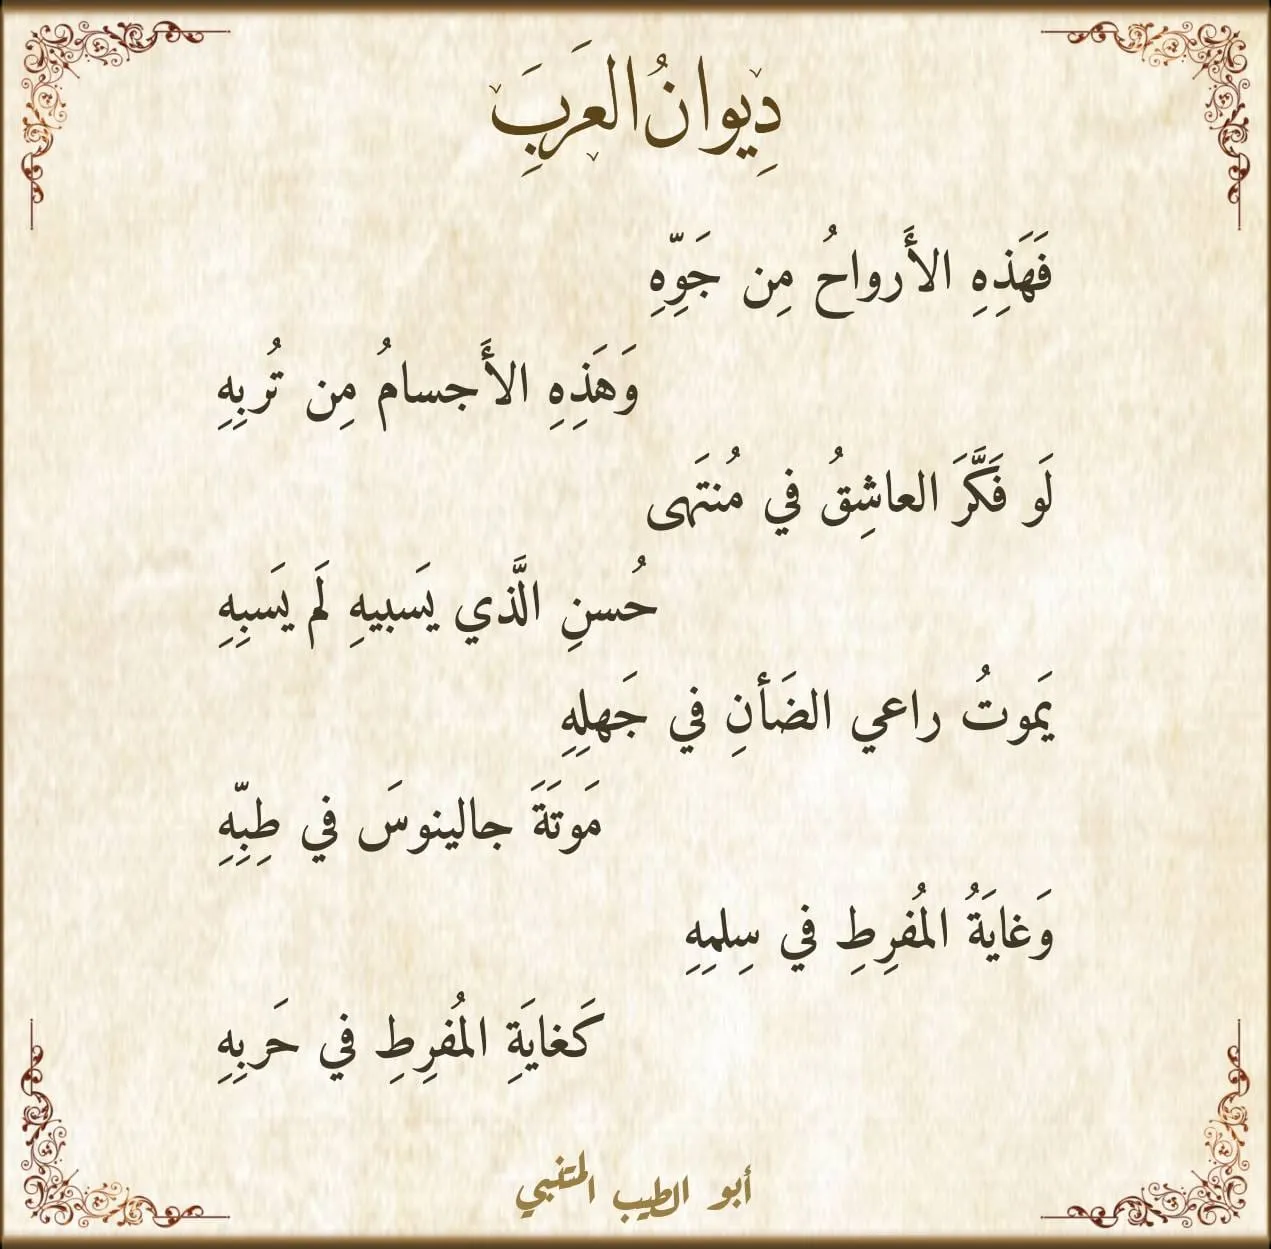 دِيوانُ العَرَبِ
فَهَذِهِ الأَرواحُ مِن جَوِّهِ
وَهَذِهِ الأَجسامُ مِن تُربِهِ
لَو فَكَّرَ العاشِقُ في مُنتَهى
حُسنِ الَّذي يَسبيهِ لَم يَسبِهِ
يَموتُ راعي الضَأنِ في جَهلِهِ
مَوتَةَ جالينوسَ في طِبِّهِ
وَغايَةُ المُفرِطِ في سِلمِهِ
كَغايَةِ المُفرِطِ في حَربِهِ
أبو الطيب المتنبي